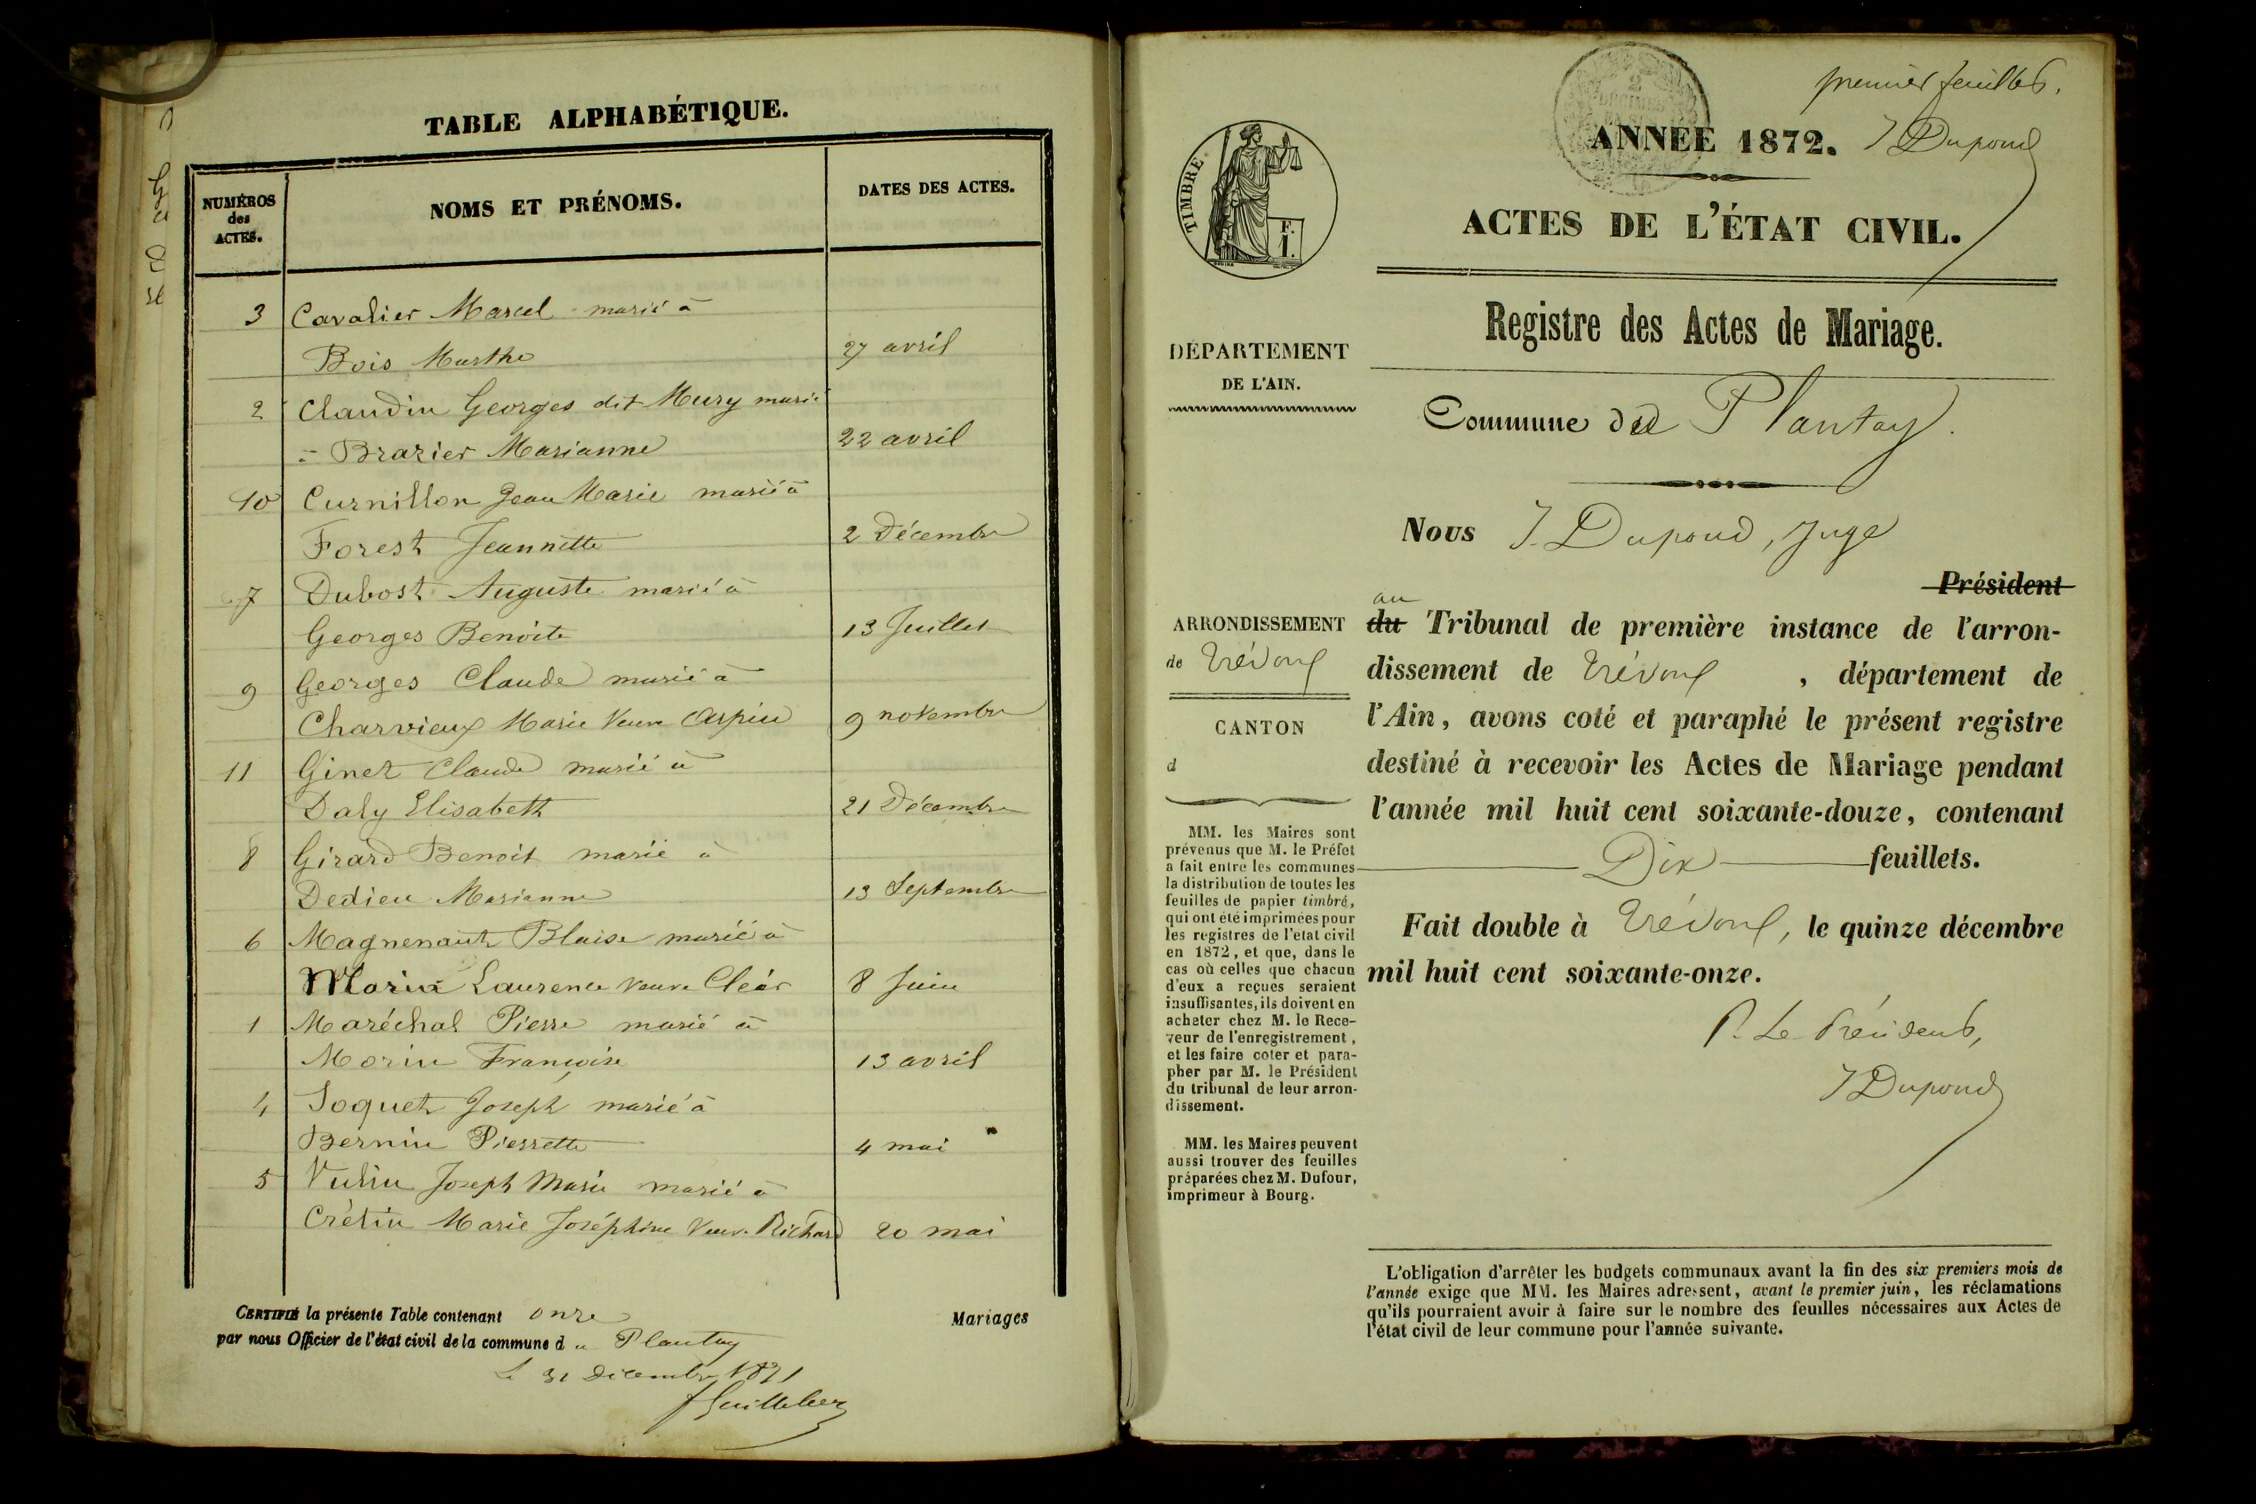 TABLE ALPHABÉTIQUE.
NUMÉROS
des
ACTES.
NOMS ET PRÉNOMS.
DATES DES ACTES.
3 Cavalier Marcel marié à
Bois Marthe 27 avril
2 Claudin Georges dit Mury marié
à Brazier Marianne 22 avril
10 Curnillon Jean Marie marié à
Forest Jeannette 2 Décembre
7 Dubost Auguste marié à
Georges Benoite 13 Juillet
9 Georges Claude marié à
Charvieux Marie Veuve Carpin 9 novembre
11 Ginet Claude marié à
Daly Elisabeth 21 Décembre
8 Girard Benoit marié à
Dedieu Marianne 13 Septembre
6 Magnenant Blaise marié à
Morin Laurence veuve Clear 8 Juin
1 Maréchal Pierre marié à
Morin Françoise 13 avril
4 Soquet Joseph marié à
Bernin Pierrette 4 mai
5 Vulin Joseph Marie marié à
Crétin Marie Joséphine Veuve Richard 20 mai
CERTIFIÉ la présente Table contenant onze Mariages
par nous Officier de l'état civil de la commune du Plantay
le 31 Décembre 1871
premier feuillet.
J Dupond
2
DÉCIMES
TIMBRE
F.
I.
ANNÉE 1872.
ACTES DE L'ÉTAT CIVIL.
Registre des Actes de Mariage.
DÉPARTEMENT
DE L'AIN.
Commune de Plantay.
Nous J. Dupond, Juge
Président
au
du Tribunal de première instance de l'arron-
dissement de Trévoux, département de
l'Ain, avons coté et paraphé le présent registre
destiné à recevoir les Actes de Mariage pendant
l'année mil huit cent soixante-douze, contenant
Dix feuillets.
Fait double à Trévoux, le quinze décembre
mil huit cent soixante-onze.
P. Le Président,
J Dupond
ARRONDISSEMENT
de Trévoux
CANTON
d
MM. les Maires sont
prévenus que M. le Préfet
a fait entre les communes
la distribution de toutes les
feuilles de papier timbré,
qui ont été imprimées pour
les registres de l'état civil
en 1872, et que, dans le
cas où celles que chacun
d'eux a reçues seraient
insuffisantes, ils doivent en
acheter chez M. le Rece-
veur de l'enregistrement,
et les faire coter et para-
pher par M. le Président
du tribunal de leur arron-
dissement.
MM. les Maires peuvent
aussi trouver des feuilles
préparées chez M. Dufour,
imprimeur à Bourg.
L'obligation d'arrêter les budgets communaux avant la fin des six premiers mois de
l'année exige que MM. les Maires adressent, avant le premier juin, les réclamations
qu'ils pourraient avoir à faire sur le nombre des feuilles nécessaires aux Actes de
l'état civil de leur commune pour l'année suivante.